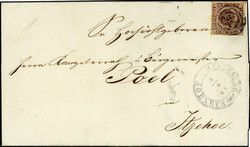 Sr. Hochwohlgeboren
Herrn Kanzeleirath u. Bürgermeister
Poel
in
Itzehoe.